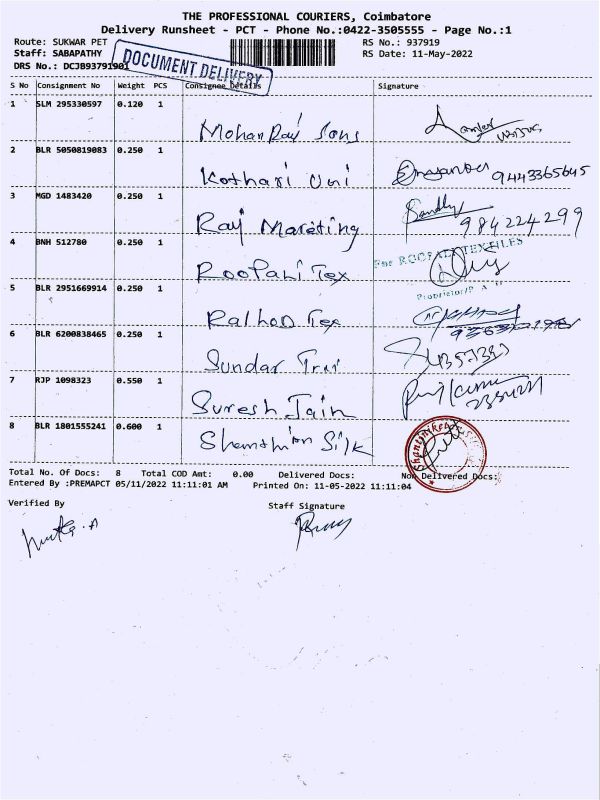 THE PROFESSIONAL COURIERS, Coimbatore
Delivery Runsheet - PCT - Phone No.:0422-3505555 - Page No.:1
Route: SUKWAR PET RS No.: 937919
Staff: SABAPATHY RS Date: 11-May-2022
DRS No.: DCJB93791901
DOCUMENT DELIVERY
S No Consignment No Weight PCS Consignee Details Signature
1 SLM 295330597 0.120 1
Mohan Raj Sons
2 BLR 5050819083 0.250 1
Kothari Uni 9443365645
3 MGD 1483420 0.250 1
Raj Mareting 984224299
4 BNH 512780 0.250 1
For ROOPALI TEXTILES
RooPali Tex
Proprietor/P.A
5 BLR 2951669914 0.250 1
Rathod Tex
6 BLR 6200838465 0.250 1
Sundar
7 RJP 1098323 0.550 1
Suresh Jain
8 BLR 1801555241 0.600 1
Silk
Total No. Of Docs: 8 Total COD Amt: 0.00 Delivered Docs: Non Delivered Docs:
Entered By :PREMAPCT 05/11/2022 11:11:01 AM Printed On: 11-05-2022 11:11:04
Verified By Staff Signature